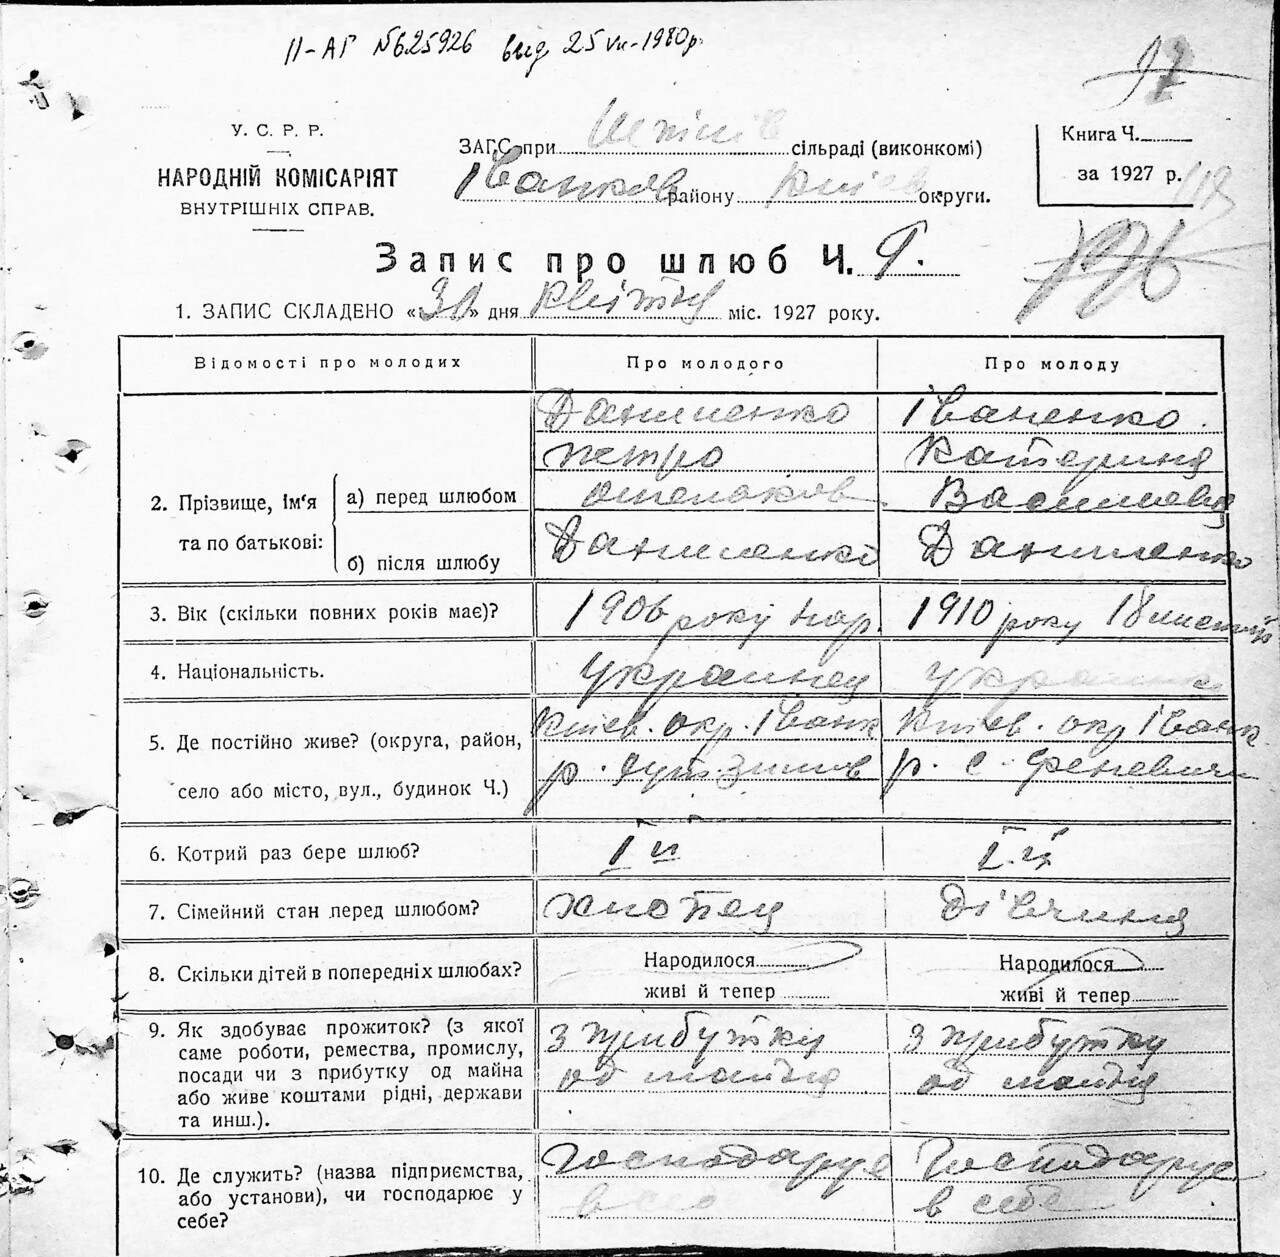 II-АГ №625926 вид 25 VII-1980р.
У. С. Р. Р.
НАРОДНІЙ КОМІСАРІЯТ
ВНУТРІШНІХ СПРАВ.
ЗАГС при сільраді (виконкомі)
Іванков району Київ округи.
Книга Ч.
за 1927 р.
Запис про шлюб Ч. 9.
1. ЗАПИС СКЛАДЕНО «30» дня квітня міс. 1927 року.
Відомості про молодих Про молодого Про молоду
2. Прізвище, ім'я та по батькові:
а) перед шлюбом
Даниленко Іваненко
петро Катерина
Василієва
б) після шлюбу
Даниленко Даниленко
3. Вік (скільки повних років має)? 1906 року нар. 1910 року 18
4. Національність. Украинец украинка
5. Де постійно живе? (округа, район, Київ. окр. Іванк Київ. окр Іванк
село або місто, вул., будинок Ч.) р. хут. р. с. Феневичи
6. Котрий раз бере шлюб? І й І й
7. Сімейний стан перед шлюбом? хлопец дівчина
8. Скільки дітей в попередніх шлюбах? Народилося Народилося
живі й тепер живі й тепер
9. Як здобуває прожиток? (з якої з прибутку з прибутку
саме роботи, ремества, промислу, од майна од майна
посади чи з прибутку од майна
або живе коштами рідні, держави
та инш.).
10. Де служить? (назва підприємства, Господарує Господарує
або установи), чи господарює у в себе в себе
себе?